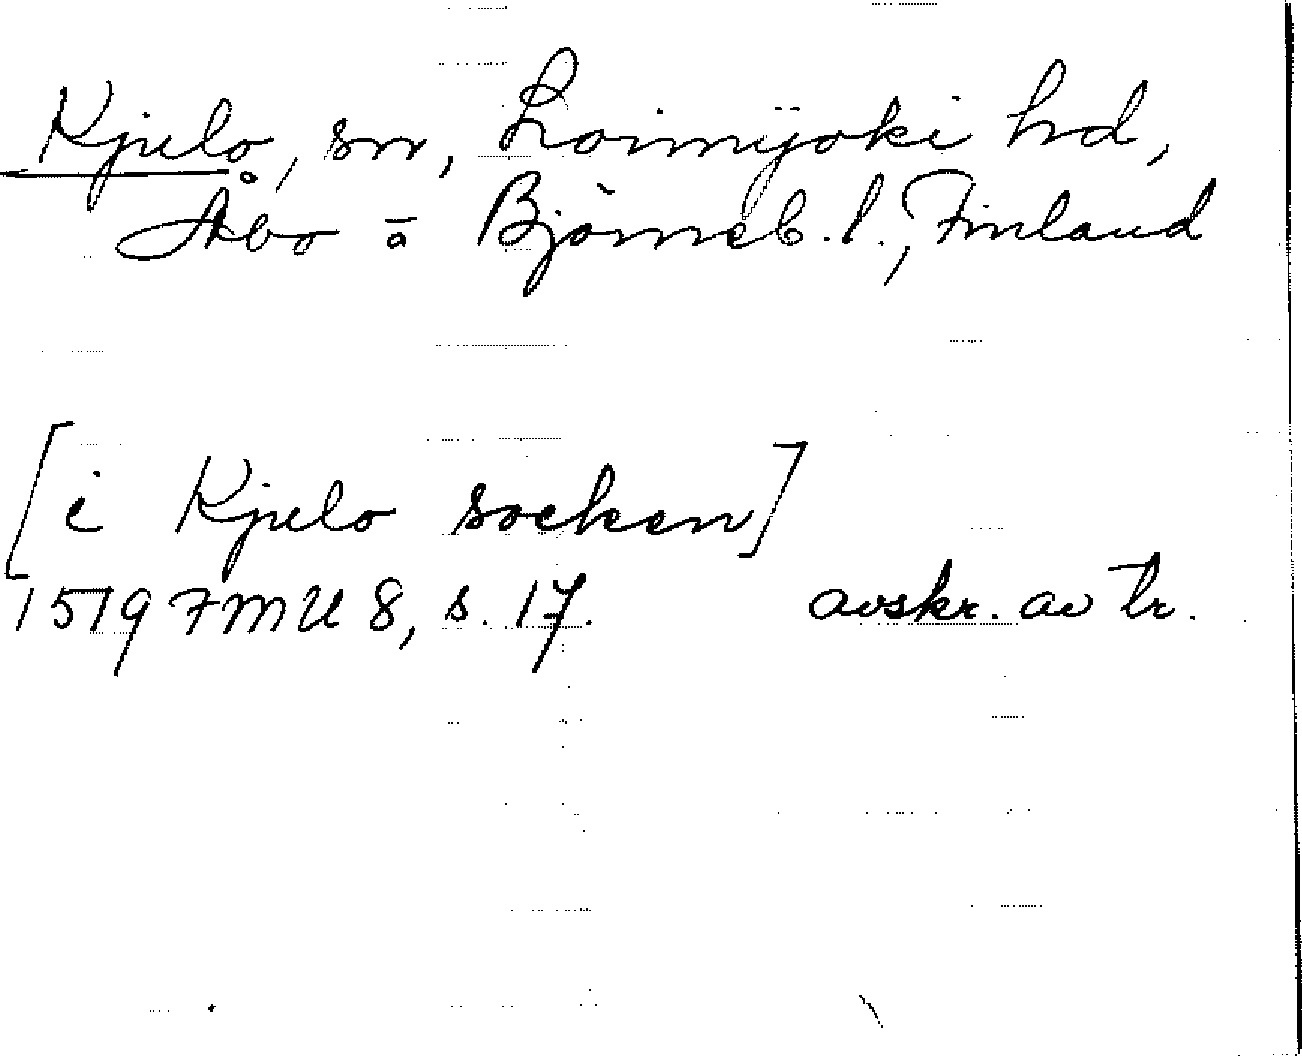 Kjulo, sn, Loimijoki hd,
Åbo o Björneb. l., Finland
[i Kjulo socken]
1519 FMU 8, s. 17. avskr. av tr.